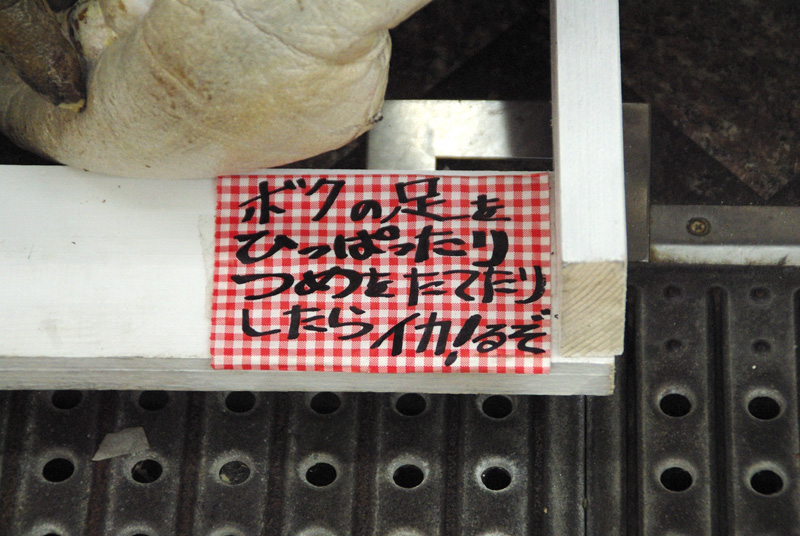 ボクの足を
ひっぱったり
つめをたてたり
したらイカ!るぞ